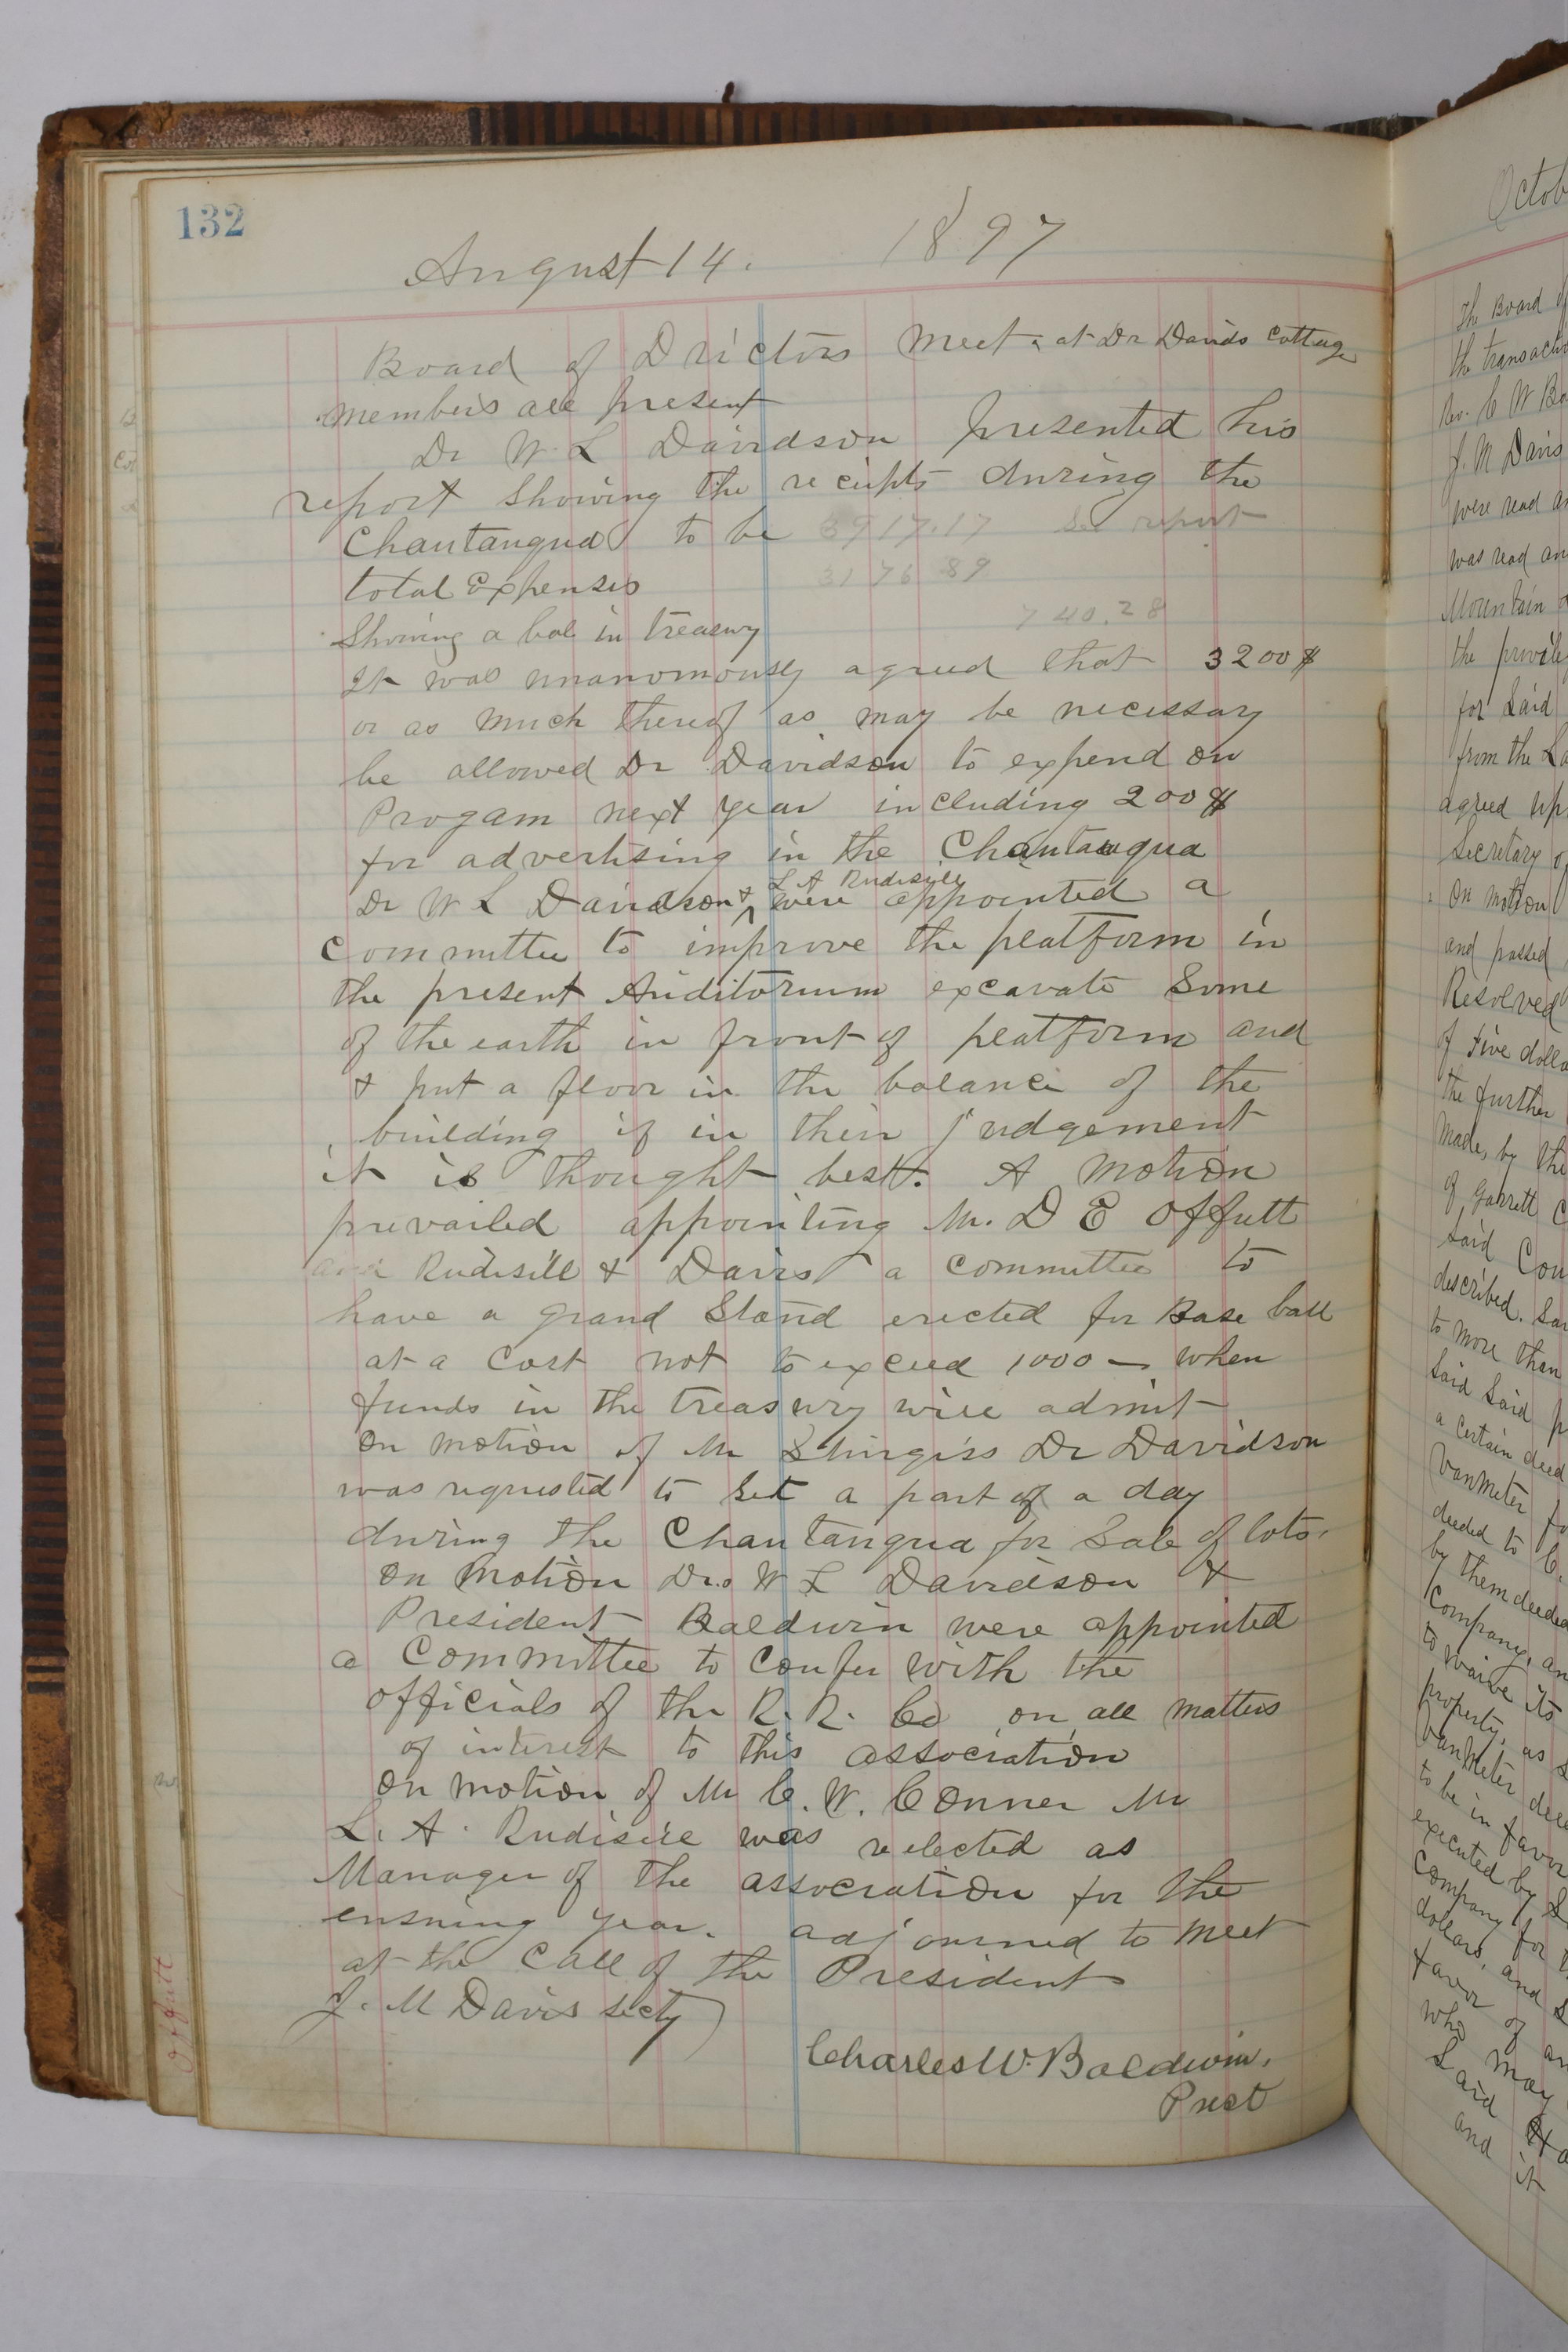 132
August 14. 1897
Board of Drictors meet at Dr Davids Cottage
members all present
Dr W. L Davidson presented his
report showing the reciepts during the
Chautauqua to be 3917.17 See report
total Expenses 3176 89
Showing a bal in treasury 740.28
It was unanomously agreed that 3200$
or as much thereof as may be necessary
be allowed Dr Davidson to expend on
Progam next year including 200$
for advertising in the Chautauqua
L A Rudisill
Dr W L Davidson & were appointed a
committee to improve the platform in
the present Auditorium excavate Some
of the earth in front of platform and
& put a floor in the balance of the
building if in their judgement
it is thought best. A motion
prevailed appointing M. D E Offutt
and Rudisill & Davis a committee to
have a grand Stand erected for Base ball
at a Cost not to exceed 1000 — when
funds in the treasury will admit
On motion of Mr Sturgiss Dr Davidson
was requested to Set a part of a day
during the Chautauqua for Sale of lots.
On Motion Dr. W L Davidson &
President Baldwin were appointed
a Committee to Confer with the
officials of the R. R. Co on all matters
of interest to this association
On motion of Mr C. W. Conner Mr
L. A. Rudisill was relected as
Manager of the association for the
ensuing year. adjourned to meet
at the Call of the President
J. M Davis secty
Charles W. Baldwin.
Prest
Offutt
Octob
The Board of
the transactio
Rev. C W Ba
J. M Davis
were read an
was read an
Mountain
the privile
for Said
from the La
agreed up
Secretary of
On motion
and passed
Resolved
of Five dolla
the further
made, by the
of Garrett C
Said Con
described. Sa
to more than
Said Said p
a Certain deed
VanMeter fo
deeded to C.
by them deeded
Company, an
to waive its
property, as s
VanMeter dee
to be in favor
executed by S
Company for
dollars, and s
favor of an
who may
Said
and it